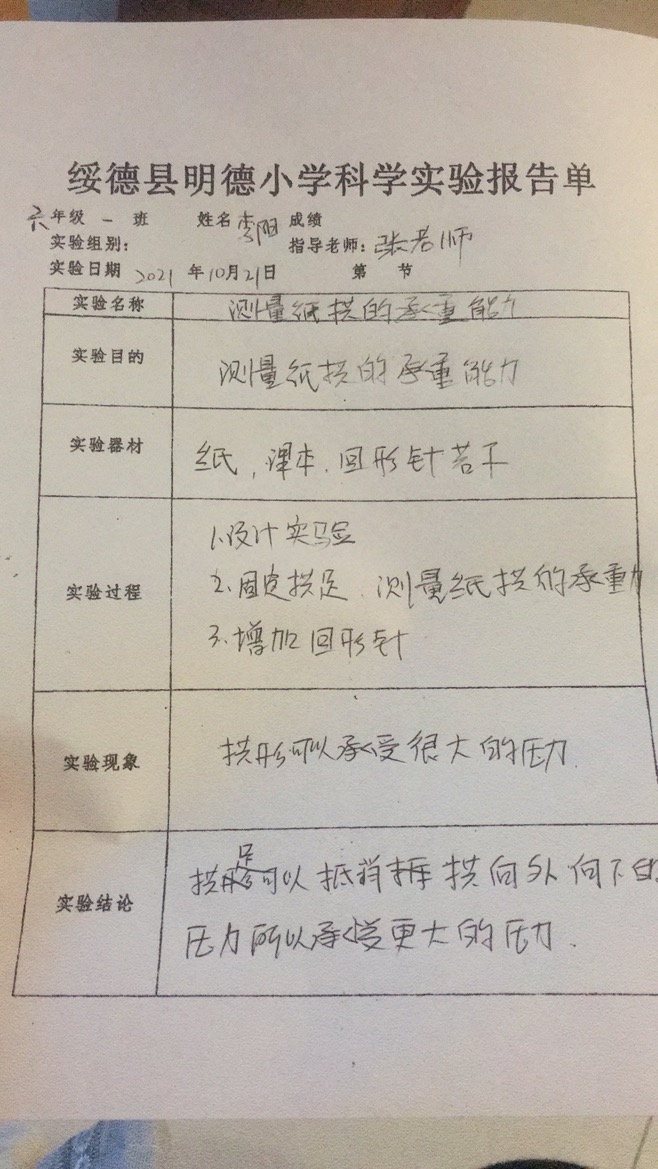 绥德县明德小学科学实验报告单
六年级 一 班 姓名 李阳 成绩
实验组别: 指导老师: 张老师
实验日期 2021 年10月21日 第 节
实验名称 测量纸拱的承重能力
实验目的 测量纸拱的承重能力
实验器材 纸,课本.回形针若干
实验过程
1.设计实验
2.固定拱足.测量纸拱的承重力
3.增加回形针
实验现象 拱形可以承受很大的压力.
实验结论
拱足可以抵消 拱向外向下的
压力所以承受更大的压力.